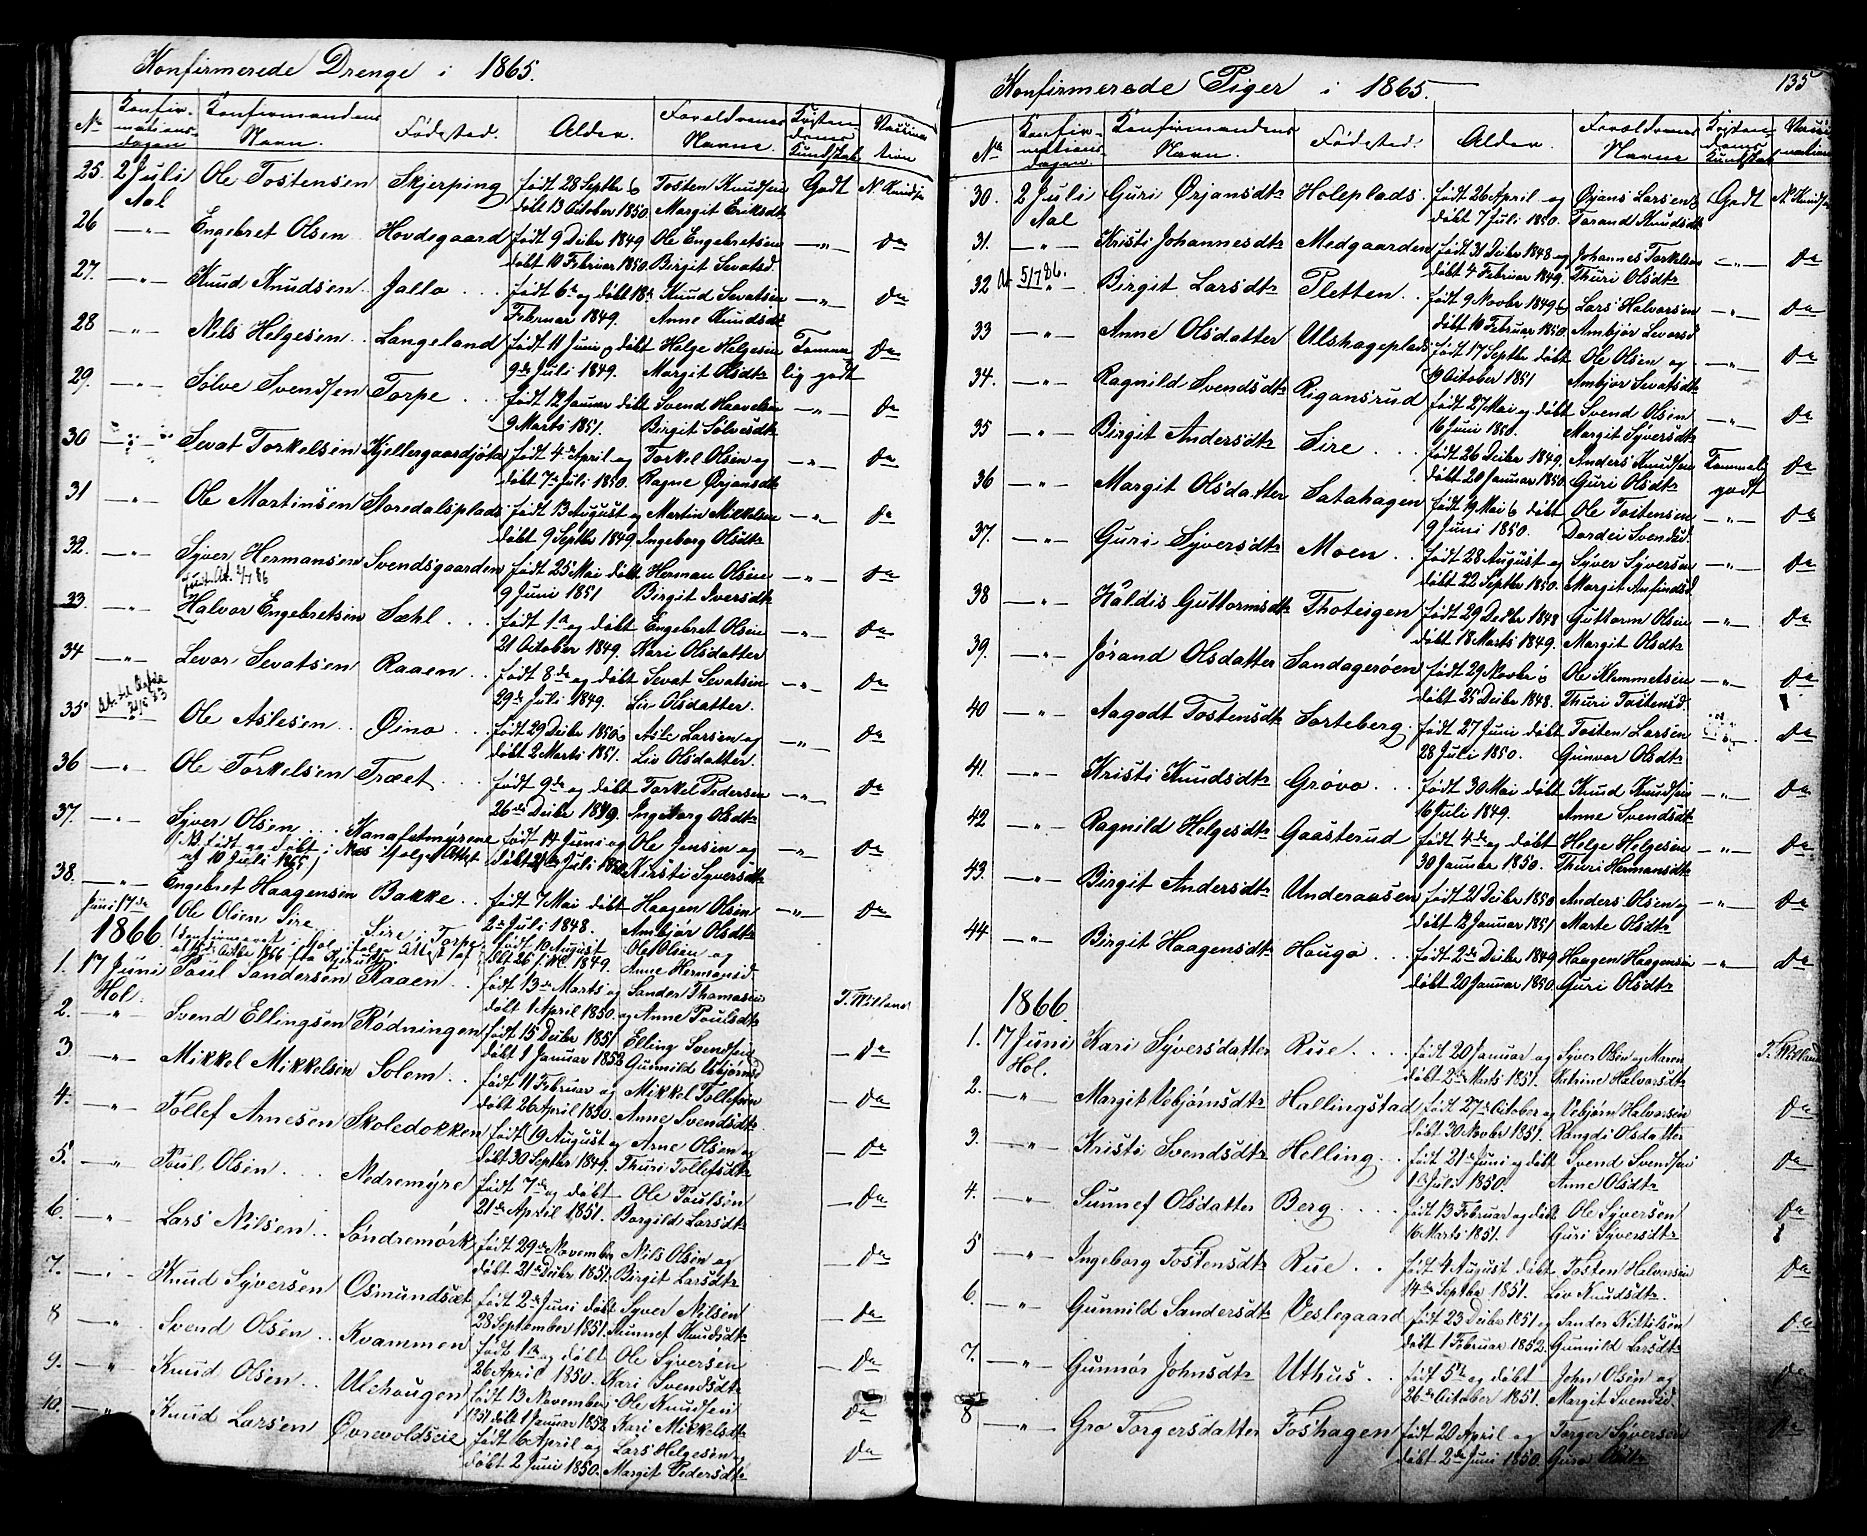 Konfirmerede Drenge i 1865.
No Konfirmationsdagen Konfirmandens Navn. Fødested. Alder. Forældrenes Navne Kristendoms Kundskab
25. 2 Juli Ole Tostensen Skjerping født 28 Septbr Tosten Knudsen Godt N. Knudsen
Aal døbt 13 October 1850. Margit Eriksdtr
26 —"— Engebret Olsen Hovdegaard født 9 Decbr 1849 Ole Engebretsen —"— Do
døbt 10 Februar 1850. Birgit Sevatsd.
27. —"— Knud Knudsen Jallo født 6te og døbt 18de Knud Sevatsen —"— Do
Februar 1849. Anne Knudsdtr
28 —"— Nils Helgesen Langeland født 11 Juni og døbt Helge Helgesen Temme- Do
9de Juli 1849. Margit Olsdtr lig godt
29. —"— Sølve Svendsen Torpe født 12 Januar døbt Svend Haavelsen —"— Do
9 Marts 1851. Birgit Sølvesdtr
30 —"— Sevat Torkelsen født 4de April og Torkel Olsen og —"— Do
døbt 7de Juli 1850. Ragne Ørjansdtr
31 —"— Ole Martinsen Storedalsplads født 13 August og Martin Mikkelsen —"— Do
døbt 9 Septbr 1849. Ingeborg Olsdtr
32. —"— Syver Hermansen Svendsgaarden født 25 Mai døbt Herman Olsen —"— Do
9 Juni 1851 Birgit Iversdtr
33. —"— Halvor Engebretsen Sæhl født 1ste og døbt Engebret Olsen —"— Do
21 October 1849. Kari Olsdatter
34 —"— Levor Sevatsen Raaen født 8de og døbt Sevat Sevatsen —"— Do
29de Juli 1849. Liv Olsdatter.
35. Ole Aslesen Øino født 29 Decbr 1850 Asle Larsen og —"— Do
døbt 2 Marts 1851. Liv Olsdatter.
36 —"— Ole Torkelsen Træet født 9de og døbt Torkel Pedersen —"— Do
26de Decbr 1849. Ingeborg Olsdtr
37. —"— Syver Olsen Kanafetmyrene født 14 Juni og Ole Jensen og —"— Do
NB. født og døbt i Næs ifølge Attest døbt Juli 1850 Kirsti Syversdtr
af 10 Juli 1865)
38. —"— Engebret Haagensen Bakke født 7 Mai døbt Haagen Olsen —"— Do
2de Juli 1848. Ambjør Olsdtr
Juni 17de Ole Olsen Sire Sire i Torpe født 10 August Ole Olsen og
1866 1849. Anne Hermansd
1. 17 Juni Poul Sandersen Raaen født 13de Marts og Sander Thomasen
Hol. døbt 1 April 1850. og Anne Poulsdtr
2. " Svend Ellingsen Rødningen født 15 Decbr 1851 Elling Svendsen — Do
døbt 1 Januar 1852 Gunnild Vebjørnsd
3 —"— Mikkel Mikkelsen Solem født 11 Februar og Mikkel Tollefsen — Do
døbt 26 April 1850. Anne Svendsdtr
4. —"— Tollef Arnesen Skoledokken født 19 August og Arne Olsen og — Do
døbt 30 Septbr 1849. Thuri Tollefsdtr
5. —"— Poul Olsen Nedremyre født 7de og døbt Ole Poulsen — Do
21de April 1851. Borgild Larsdtr
6. —"— Lars Nilsen Søndremørk født 29de November Nils Olsen og — Do
døbt 21de Decbr 1851. Birgit Larsdtr
7. —"— Knud Syversen Osmundsæt født 2de Juni døbt Syver Nilsen — Do
28 September 1851. Sunnef Knudsdtr
8 —"— Svend Olsen Kvammen født 1ste og døbt Ole Syversen — Do
26 April 1850. Kari Svendsdtr
9. —"— Knud Olsen Ulehougen født 13 November Ole Knudsen Do
1851 døbt 1 Januar 1852 Kari Mikkelsdtr
10. —"— Knud Larsen Øvrevoldseie født 6 April og Lars Helgesen Do
døbt 2 Juni 1850. Margit Pedersdtr
135
Konfirmerede Piger i 1865.
No Konfirmationsdagen. Konfirmandens Navn. Fødested. Alder. Forældrenes Navne Kristendoms Kundskab
30. 2 Juli Guri Ørjansdtr Holeplads født 26 April og Ørjans Larsen Godt N. Knudsen
Aal døbt 7 Juli 1850. Torand Knudsdtr
31. —"— Kristi Johannesdtr Medgaarden født 31 Decbr 1848 og Johannes Torkelsen —"— Do
døbt 4 Februar 1849. Thuri Olsdtr
32 5/7 86. Birgit Larsdtr Pletten født 9 Novbr 1849 Lars Halvorsen —"— Do
døbt 10 Februar 1850. Ambjør Levorsd
33 —"— Anne Olsdatter Ulshageplads født 17 Septbr døbt Ole Olsen og —"— Do
19 October 1851 Ambjør Sevatsdtr
34. —"— Ragnild Svendsdtr Rigansrud født 27 Mai og døbt Svend Olsen —"— Do
16 Juni 1850. Margit Syversdtr
35 —"— Birgit Andersdtr Sire født 26 Decbr 1849. Anders Knudsen Temmelig Do
døbt 20 Januar 1850. Guri Olsdtr godt
36 —"— Margit Olsdatter Satahagen født 19 Mai døbt Ole Tostensen —"— Do
9 Juni 1850. Dordei Svendsd.
37. —"— Guri Syversdtr Moen født 28 August og Syver Syversen —"— Do
døbt 22 Septbr 1850. Margit Anfindsd
38 —"— Haldis Guttormsdtr Thoteigen født 29 Decbr 1848 Guttorm Olsen —"— Do
døbt 18 Marts 1849. Margit Olsdtr
39. —"— Jørand Olsdatter Sandagerøen født 29 Novbr Ole Klemmetsen —"— Do
døbt 25 Decbr 1848. Thuri Tostensd.
40 —"— Aagodt Tostensdtr Sorteberg født 27 Juni døbt Tosten Larsen Do
28 Juli 1850. Gunvor Olsdtr
41. —"— Kristi Knudsdtr Grøvo født 30 Mai døbt Knud Knudsen —"— Do
16 Juli 1849. Anne Svendsdtr
42 —"— Ragnild Helgesdtr Gaasterud født 4de og døbt Helge Helgesen —"— Do
30 Januar 1850. Thuri Hermansdtr
43. —"— Birgit Andersdtr Underaasen født 21 Decbr 1850 Anders Olsen og —"— Do
døbt 12 Januar 1851 Marte Olsdtr
44 —"— Birgit Haagensdtr Hougo født 2de Decbr 1849 Haagen Haagensen —"— Do
døbt 20 Januar 1850. Guri Olsdtr
1866.
1. 17 Juni Kari Syversdatter Rue født 20 Januar og Syver Olsen og Maren
Hol. døbt 2de Marts 1851. Katrine Halvorsdtr
2. —"— Margit Vebjørnsdtr Hallingstad født 27de October og Vebjørn Halvorsen Do
døbt 30 Novbr 1851. Rangdi Olsdatter
3. —"— Kristi Svendsdtr Helling født 21de Juni og døbt Svend Svendsen Do
Juli 1850. Anne Olsdtr
4. —"— Sunnef Olsdatter Berg født 13 Februar og døbt Ole Syversen Do
16 Marts 1851. Guri Syversdtr
5 —"— Ingeborg Tostensdtr Rue født 4 August døbt Tosten Halvorsen Do
14de Septbr 1851. Liv Knudsdtr.
6. —"— Gunnild Sandersdtr Veslegaard født 23 Decbr 1851 og Sander Kittilsen Do
døbt 1 Februar 1852. Gunnild Larsdtr
7. —"— Gunnor Johnsdtr Uthus født 5te og døbt John Olsen og Do
26de October 1851. Margit Svendsd.
8 " Gro Torgersdatter Foshagen født 20 April og Torger Syversen Do
døbt 2de Juni 1850. Guro